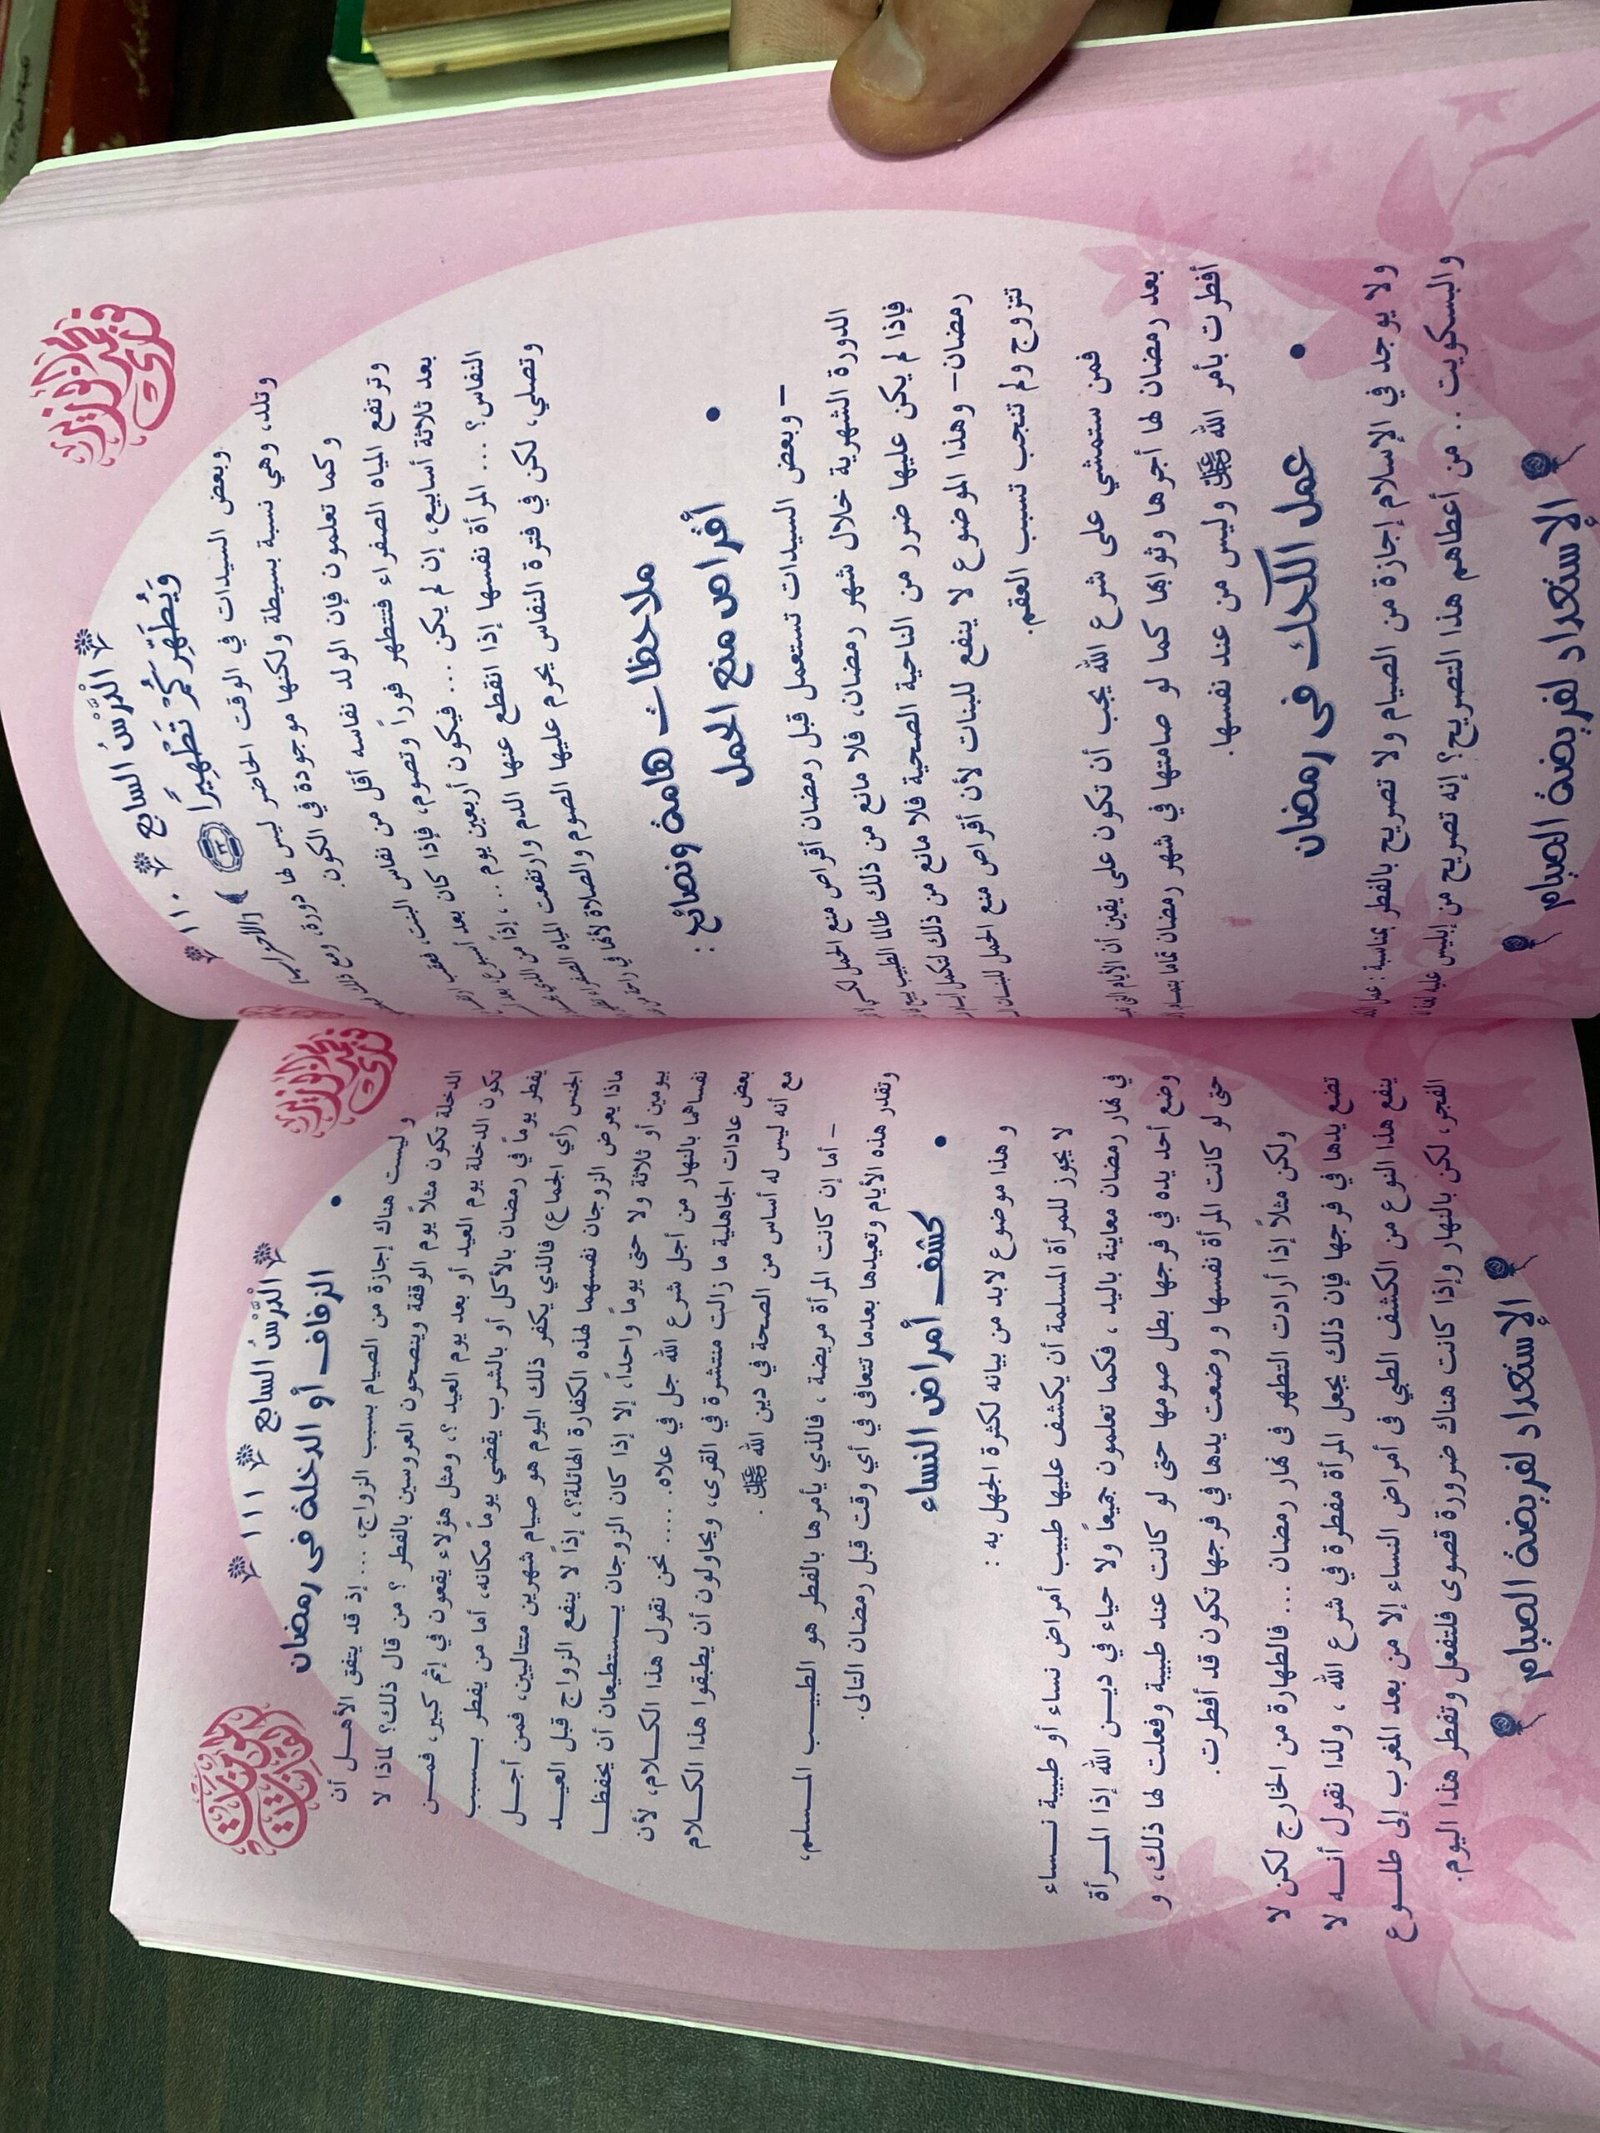 الدَّرْسُ السابع
١١٠
وَيُطَهِّرَكُمْ تَطْهِيرًا
وبعض السيدات في الوقت الحاضر ليس لها دورة، ومع ذلك
وتلد، وهي نسبة بسيطة ولكنها موجودة في الكون.
وكما تعلمون فإن الولد نفاسه أقل من نفاس البنت، فعقب
وترتفع المياه الصفراء فتتطهر فوراً وتصوم، فإذا كان بعد أسبوع، بعد
بعد ثلاثة أسابيع، إن لم يكن ... فيكون أربعين يوم .. ، إذاً من الذي
النفاس؟ ... المرأة نفسها إذا انقطع عنها الدم وارتفعت المياه الصفراء
وتصلي، لكن في فترة النفاس يحرم عليها الصوم والصلاة لأنها في
ملاحظات هامة ونصائح :
• أقراص منع الحمل
– وبعض السيدات تستعمل قبل رمضان أقراص منع الحمل لكي لا
الدورة الشهرية خلال شهر رمضان، فلا مانع من ذلك طالما الطبيب
فإذا لم يكن عليها ضرر من الناحية الصحية فلا مانع من ذلك لتكمل
رمضان– وهذا الموضوع لا ينفع للبنات لأن أقراص منع الحمل للبنات
تتزوج ولم تنجب تسبب العقم.
فمن ستمشي على شرع الله يجب أن تكون على يقين أن الأيام التي
بعد رمضان لها أجرها وثوابها كما لو صامتها في شهر رمضان تماما بتمام
أفطرت بأمر الله ﷻ وليس من عند نفسها.
• عمل الكحك فى رمضان
ولا يوجد في الإسلام إجازة من الصيام ولا تصريح بالفطر بمناسبة : عمل
والبسكويت .. من أعطاهم هذا التصريح؟ إنه تصريح من إبليس عليه
الإستعداد لفريضة الصيام
الدَّرْسُ السابع
١١١
• الزفاف أو الدخلة فى رمضان
وليست هناك إجازة من الصيام بسبب الزواج، ... إذ قد يتفق الأهل أن
الدخلة تكون مثلاً يوم الوقفة وينصحون العروسين بالفطر ؟ من قال ذلك؟ لماذا لا
تكون الدخلة يوم العيد أو بعد يوم العيد ؟، ومثل هؤلاء يقعون في إثم كبير، فمن
يفطر يوماً في رمضان بالأكل أو بالشرب يقضي يوماً مكانه، أما من يفطر بسبب
الجنس (أي الجماع) فالذي يكفر ذلك اليوم هو صيام شهرين متتاليين، فمن أجل
ماذا يعرض الزوجان نفسهما لهذه الكفارة الهائلة؟، إذاً لا ينفع الزواج قبل العيد
بيومين أو ثلاثة ولا حتى يوماً واحداً، إلا إذا كان الزوجان يستطيعان أن يحفظا
نفساهما بالنهار من أجل شرع الله جل في علاه..... نحن نقول هذا الكلام، لأن
بعض عادات الجاهلية ما زالت منتشرة في القرى، ويحاولون أن يطبقوا هذا الكلام
مع أنه ليس له أساس من الصحة في دين الله ﷻ .
– أما إن كانت المرأة مريضة ، فالذي يأمرها بالفطر هو الطبيب المسلم،
وتقدر هذه الأيام وتعيدها بعدما تتعافى في أي وقت قبل رمضان التالى.
• كشف أمراض النساء
وهذا موضوع لابد من بيانه لكثرة الجهل به :
لا يجوز للمرأة المسلمة أن يكشف عليها طبيب أمراض نساء أو طبيبة نساء
في نهار رمضان معاينة باليد ، فكما تعلمون جميعاً ولا حياء في دين الله إذا المرأة
وضع أحد يده في فرجها بطل صومها حتى لو كانت عند طبيبة وفعلت لها ذلك، و
حتى لو كانت المرأة نفسها ووضعت يدها في فرجها تكون قد أفطرت.
ولكن مثلاً إذا أرادت التطهر فى نهار رمضان ... فالطهارة من الخارج لكن لا
تضع يدها في فرجها فإن ذلك يجعل المرأة مفطرة في شرع الله ، ولذا نقول أنه لا
ينفع هذا النوع من الكشف الطبي فى أمراض النساء إلا من بعد المغرب إلى طلوع
الفجر، لكن بالنهار وإذا كانت هناك ضرورة قصوى فلتفعل وتفطر هذا اليوم.
الإستعداد لفريضة الصيام